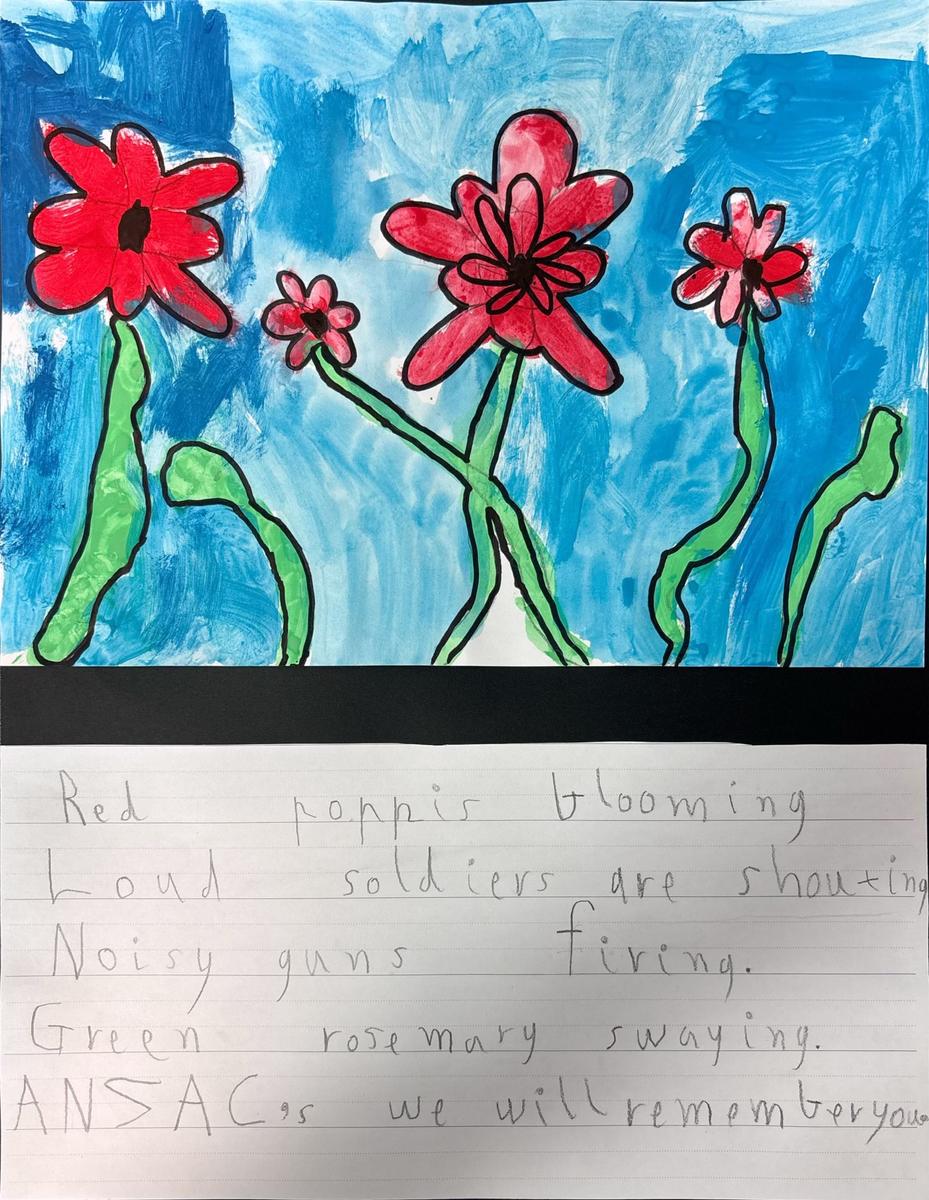 Red poppis blooming
Loud soldiers are shouting
Noisy guns firing.
Green rosemary swaying.
ANSAC,s we will remember you.